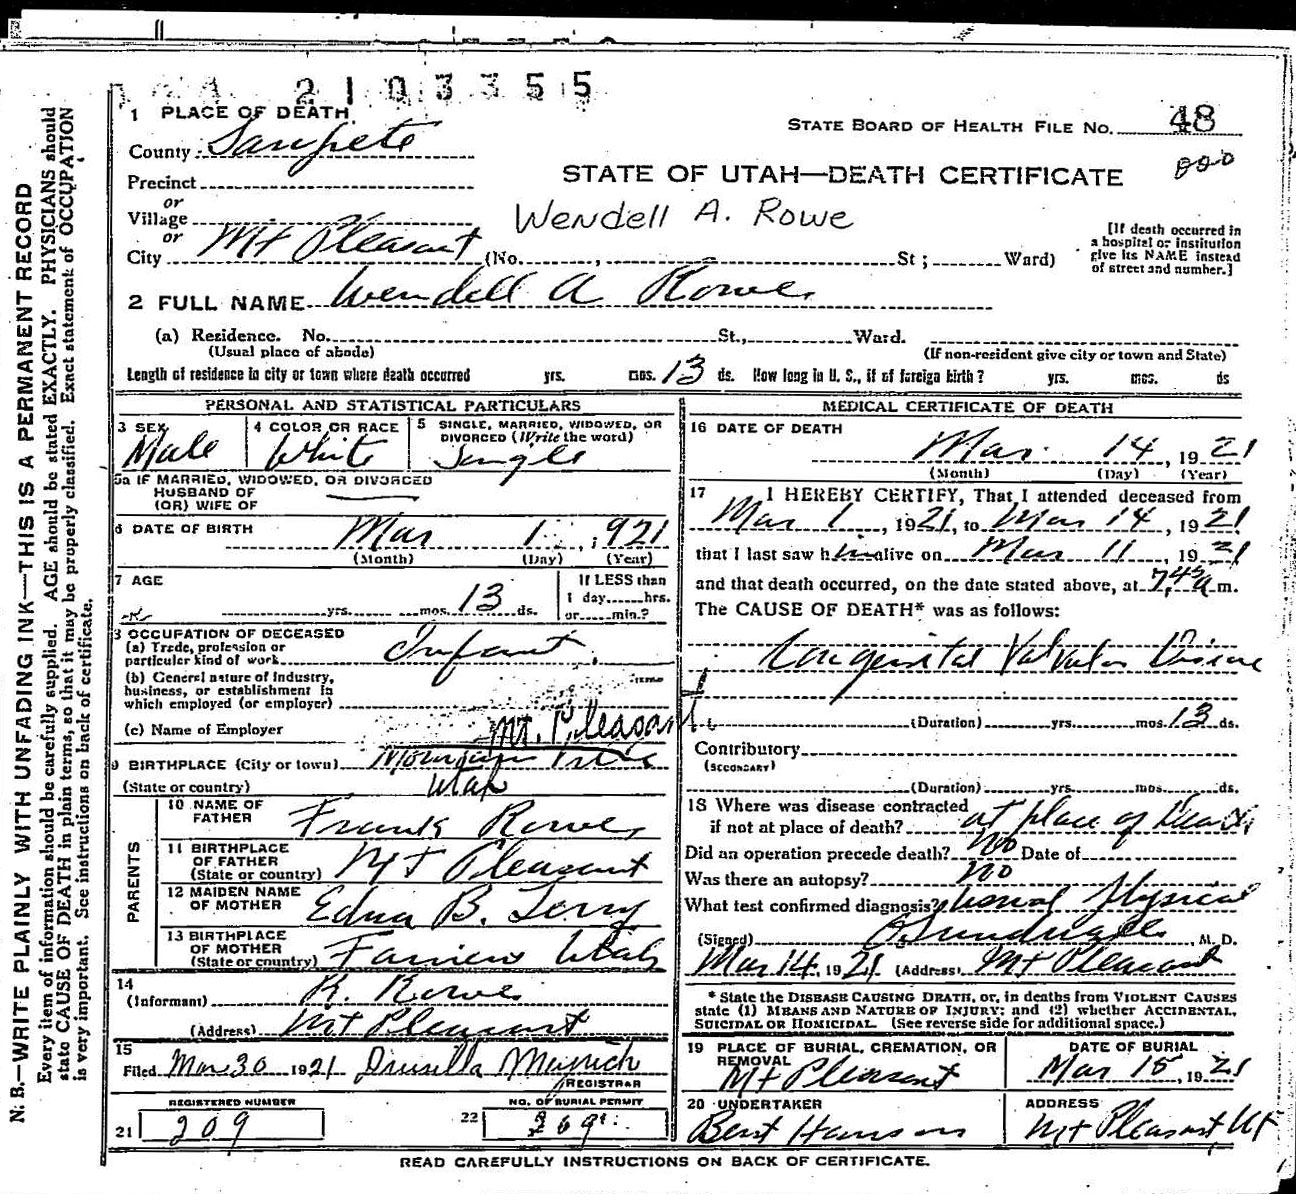 2103355
1 PLACE OF DEATH
County Sanpete
STATE BOARD OF HEALTH FILE NO. 48
Precinct
STATE OF UTAH—DEATH CERTIFICATE
or
Village
Wendell A. Rowe
or
City Mt Pleasant (No. , St; Ward)
[If death occurred in
a hospital or institution
give its NAME instead
of street and number.]
2 FULL NAME Wendell A Rowe
(a) Residence. No. St., Ward.
(Usual place of abode) (If non-resident give city or town and State)
Length of residence in city or town where death occurred yrs. mos. 13 ds. How long in U. S., if of foreign birth? yrs. mos. ds
PERSONAL AND STATISTICAL PARTICULARS
3 SEX Male
4 COLOR OR RACE White
5 SINGLE, MARRIED, WIDOWED, OR
DIVORCED (Write the word)
Single
5a IF MARRIED, WIDOWED, OR DIVORCED
HUSBAND OF
(OR) WIFE OF
6 DATE OF BIRTH Mar 1 , 1921
(Month) (Day) (Year)
7 AGE
yrs. mos. 13 ds.
If LESS than
1 day hrs.
or min.?
8 OCCUPATION OF DECEASED
(a) Trade, profession or
particular kind of work Infant
(b) General nature of industry,
business, or establishment in
which employed (or employer)
(c) Name of Employer
Mt. Pleasant
9 BIRTHPLACE (City or town)
(State or country) Utah
PARENTS
10 NAME OF
FATHER Frank Rowe
11 BIRTHPLACE
OF FATHER
(State or country) Mt Pleasant
12 MAIDEN NAME
OF MOTHER Edna B. Terry
13 BIRTHPLACE
OF MOTHER
(State or country) Fairview Utah
14
(Informant) R. Rowe
(Address) Mt Pleasant
15
Filed Mar 30 1921 Drusilla
REGISTRAR
REGISTERED NUMBER
21 209
NO. OF BURIAL PERMIT
22 269
MEDICAL CERTIFICATE OF DEATH
16 DATE OF DEATH
Mar. 14 , 19 21
(Month) (Day) (Year)
17 I HEREBY CERTIFY, That I attended deceased from
Mar 1 , 1921, to Mar 14 , 1921
that I last saw him alive on Mar 11 , 19 21
and that death occurred, on the date stated above, at 7 45 a m.
The CAUSE OF DEATH* was as follows:
Congenital Valvular Disease
(Duration) yrs. mos. 13 ds.
Contributory
(SECONDARY)
(Duration) yrs. mos. ds.
18 Where was disease contracted
if not at place of death? at place of Death
Did an operation precede death? No Date of
Was there an autopsy? No
What test confirmed diagnosis? Usual Physical
(Signed) M. D.
Mar 14, 1921 (Address) Mt Pleasant
* State the DISEASE CAUSING DEATH, or, in deaths from VIOLENT CAUSES
state (1) MEANS AND NATURE OF INJURY; and (2) whether ACCIDENTAL,
SUICIDAL or HOMICIDAL. (See reverse side for additional space.)
19 PLACE OF BURIAL, CREMATION, OR
REMOVAL
Mt Pleasant
DATE OF BURIAL
Mar 15, 1921
20 UNDERTAKER
Bent Hansen
ADDRESS
Mt Pleasant, Ut
READ CAREFULLY INSTRUCTIONS ON BACK OF CERTIFICATE.
N. B.—WRITE PLAINLY WITH UNFADING INK—THIS IS A PERMANENT RECORD
Every item of information should be carefully supplied. AGE should be stated EXACTLY. PHYSICIANS should
state CAUSE OF DEATH in plain terms, so that it may be properly classified. Exact statement of OCCUPATION
is very important. See instructions on back of certificate.